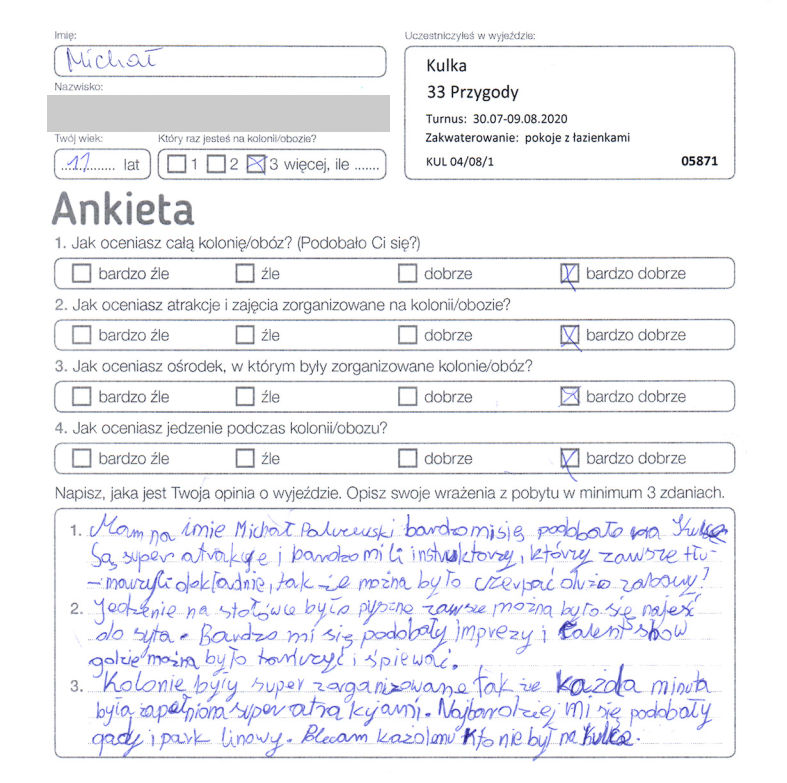 Imię:
Michał
Nazwisko:
Twój wiek:
11 lat
Który raz jesteś na kolonii/obozie?
1 2 3 więcej, ile ......
Uczestniczyłeś w wyjeździe:
Kulka
33 Przygody
Turnus: 30.07-09.08.2020
Zakwaterowanie: pokoje z łazienkami
KUL 04/08/1 05871
Ankieta
1. Jak oceniasz całą kolonię/obóz? (Podobało Ci się?)
bardzo źle źle dobrze bardzo dobrze
2. Jak oceniasz atrakcje i zajęcia zorganizowane na kolonii/obozie?
bardzo źle źle dobrze bardzo dobrze
3. Jak oceniasz ośrodek, w którym były zorganizowane kolonie/obóz?
bardzo źle źle dobrze bardzo dobrze
4. Jak oceniasz jedzenie podczas kolonii/obozu?
bardzo źle źle dobrze bardzo dobrze
Napisz, jaka jest Twoja opinia o wyjeździe. Opisz swoje wrażenia z pobytu w minimum 3 zdaniach.
1. Mam na imie Michał bardzo mi się podobało na Kulce
Są super atrakcje i bardzo mili instruktorzy, którzy zawsze tłu-
-maczyli dokładnie, tak że można było czerpać dużo zabawy!
2. Jedzenie na stołówce było pyszne zawsze można było się najeść
do syta. Bardzo mi się podobały imprezy i talent show
gdzie można było tańczyć i śpiewać.
3. Kolonie były super zorganizowane tak że każda minuta
była zapełniona super atrakcjami. Najbardziej mi się podobały
gady i park linowy. Polecam każdemu kto nie był na Kulce.